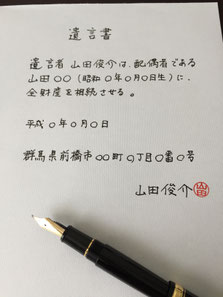 遺言書
遺言者 山田俊介は、配偶者である
山田〇〇(昭和〇年〇月〇日生)に、
全財産を相続させる。
平成〇年〇月〇日
群馬県前橋市〇〇町〇丁目〇番〇号
山田俊介